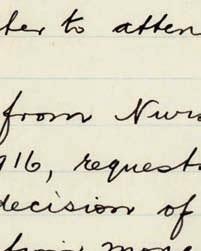 ter to atten
from Nurs
916, request
decision of